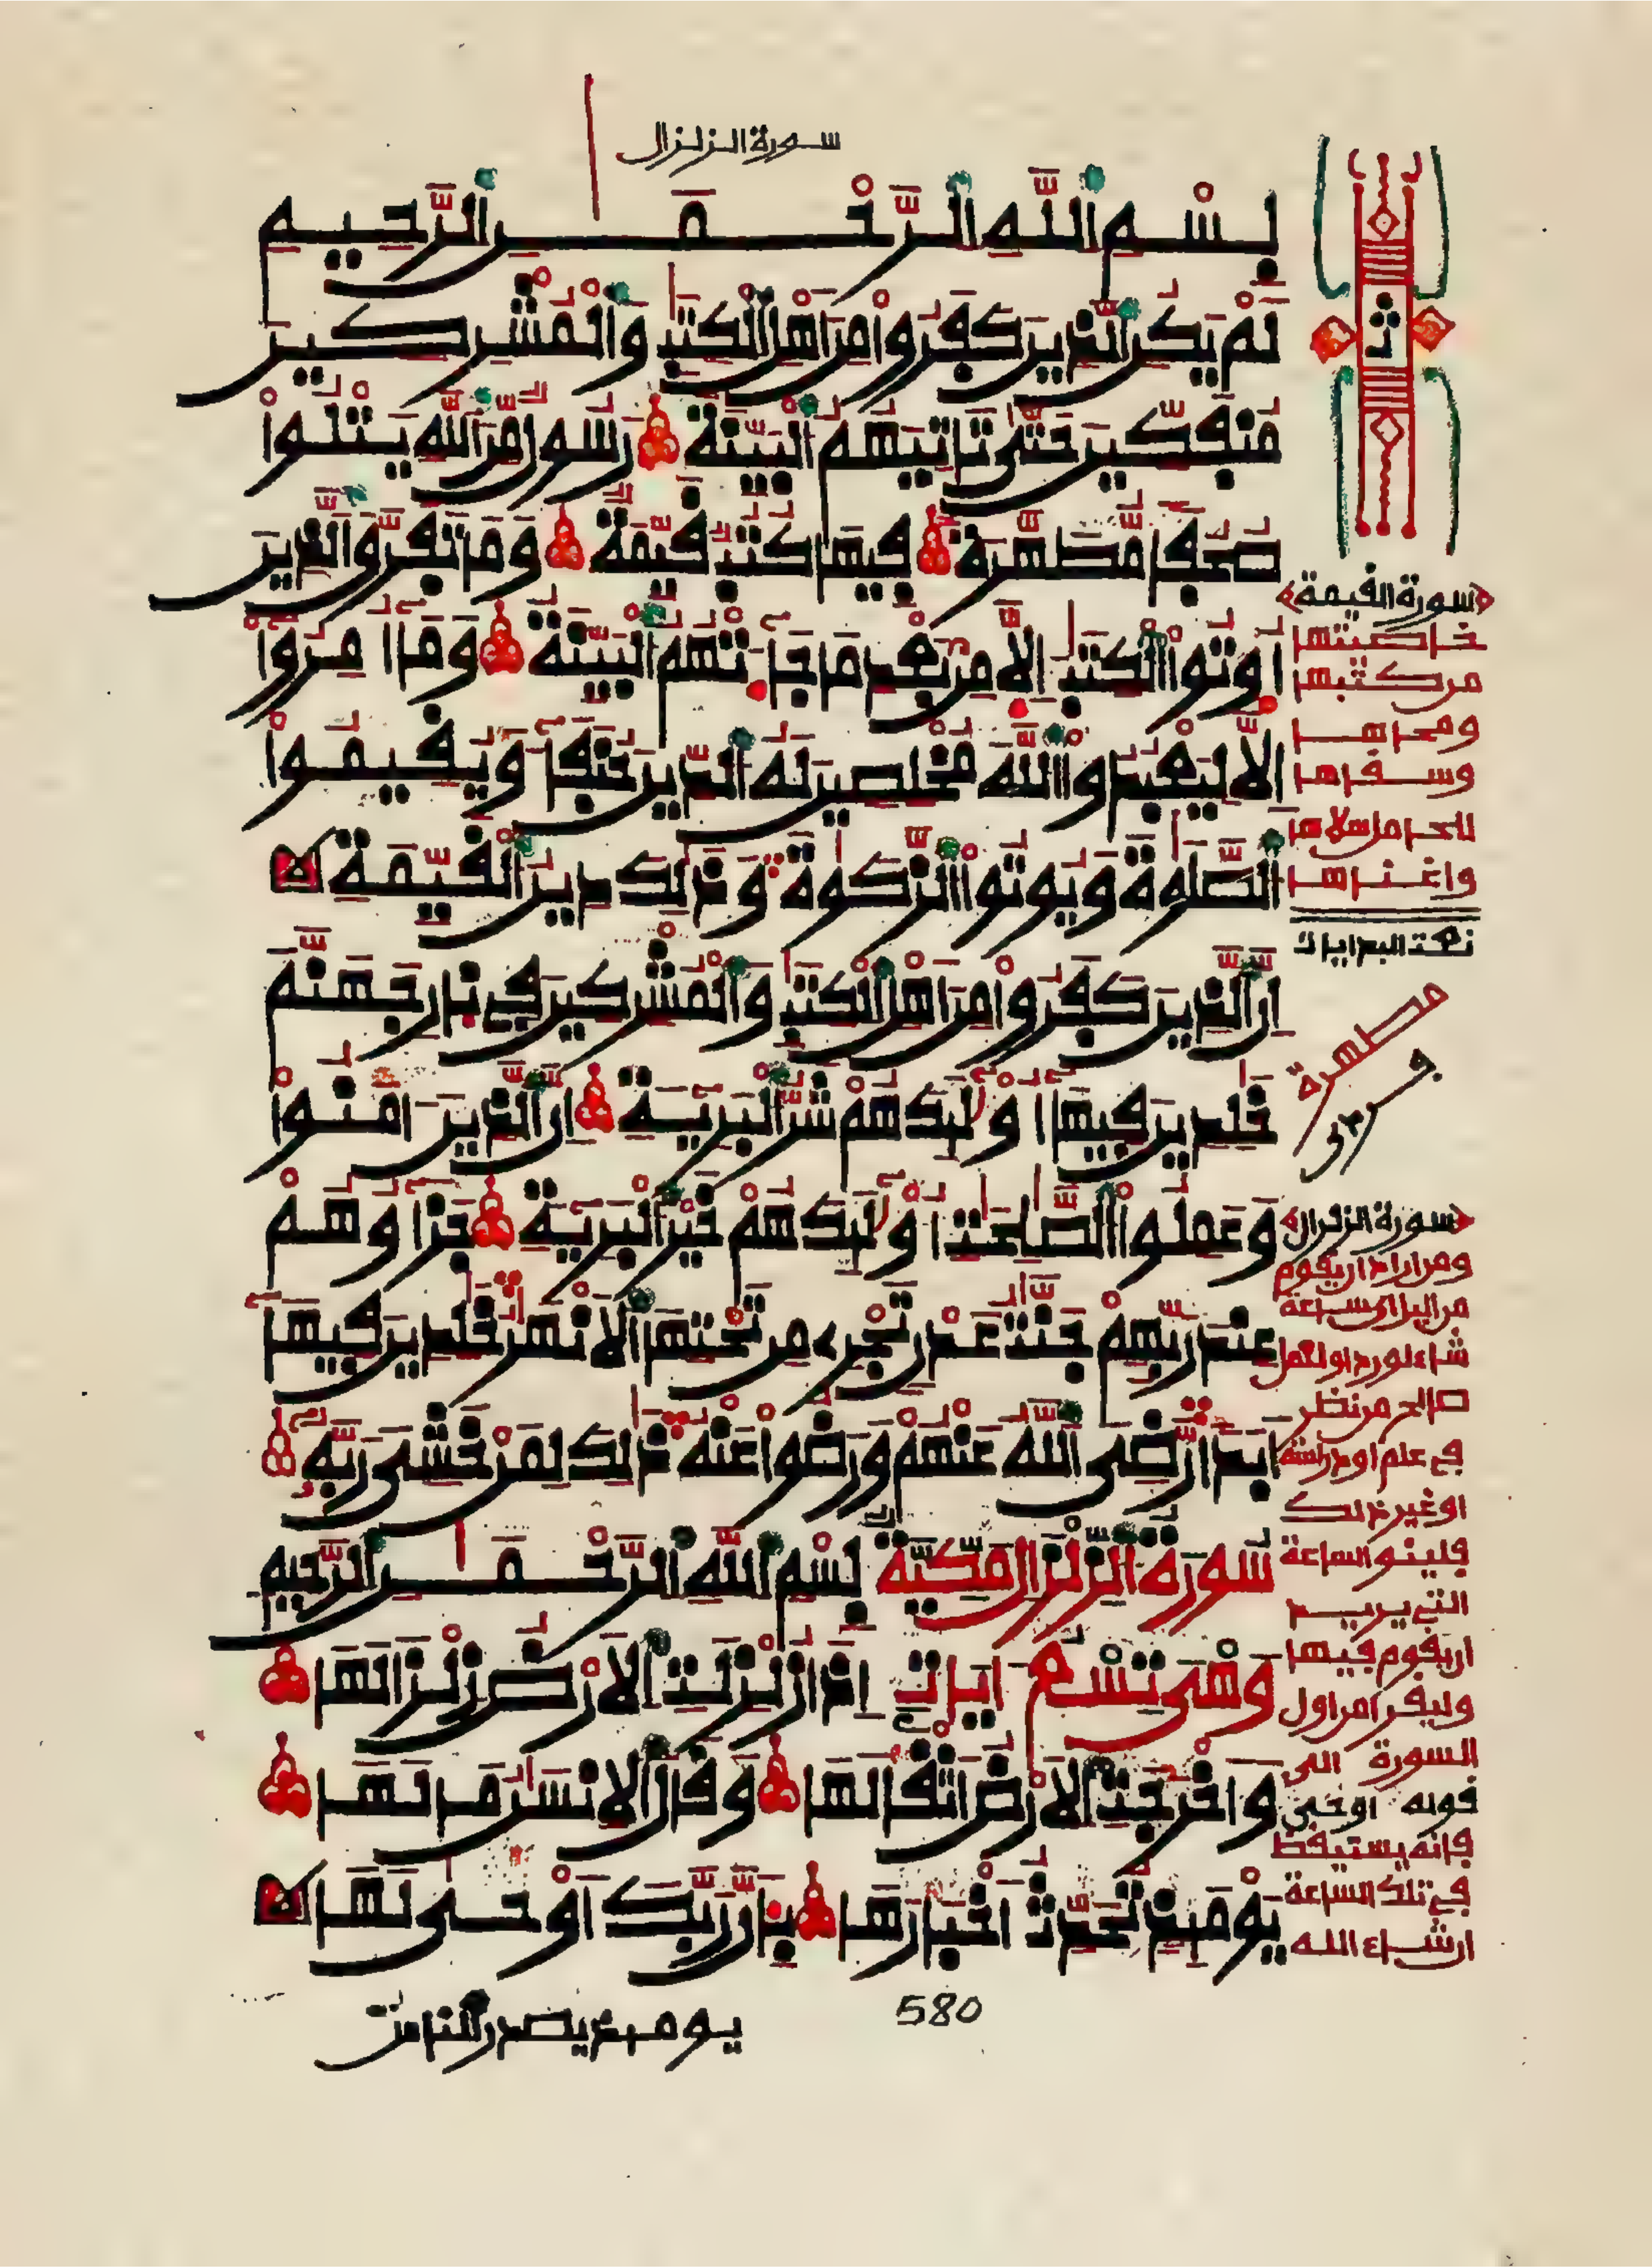 سورة الزلزال
بسم الله الرحمن الرحيم
لم يكن الذين كفروا من اهل الكتب والمشركين
منفكين حتى تاتيهم البينة رسول من الله يتلوا
صحفا مطهرة فيها كتب قيمة وما تفرق الذين
اوتوا الكتب الا من بعد ما جاتهم البينة وما امروا
الا ليعبدوا الله مخلصين له الدين حنفا ويقيموا
الصلوة ويوتوا الزكوة وذلك دين القيمة
ان الذين كفروا من اهل الكتب والمشركين في نار جهنم
خلدين فيها اوليك هم شر البرية ان الذين امنوا
وعملوا الصلحت اوليك هم خير البرية جزاوهم
عند ربهم جنت عدن تجرے من تحتها الانهر خلدين فيها
ابدا رضى الله عنهم ورضوا عنه ذلك لمن خشى ربه
سورة الزلزال مكية بسم الله الرحمن الرحيم
وهى تسع ايات اذا زلزلت الارض زلزالها
واخرجت الارض اثقالها وقال الانسن ما لها
يوميذ تحدث اخبارها بان ربك اوحى لها
580
يومىذ يصدر الناس
ث
سورة القيمة
خاصيتها
من كتبها
ومحاها
وسقاها
واغناها
مطهرة
سورة الزلزال
ومن اراد ان يقوم
من اليل اى ساعة
شاء لورد او لعمل
صالح من نظر
في علم او دراسة
او غير ذلك
فلينو الساعة
التي يريد
ان يقوم فيها
وليقرا من اول
السورة الى
قوله اوحى
فانه يستيقظ
في تلك الساعة
ان شاء الله